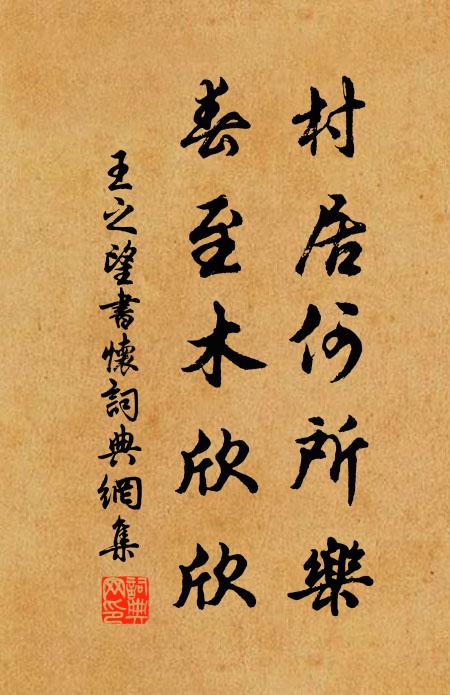 村居何所樂
春至木欣欣
王之望書懷詞典網集
詞典網印